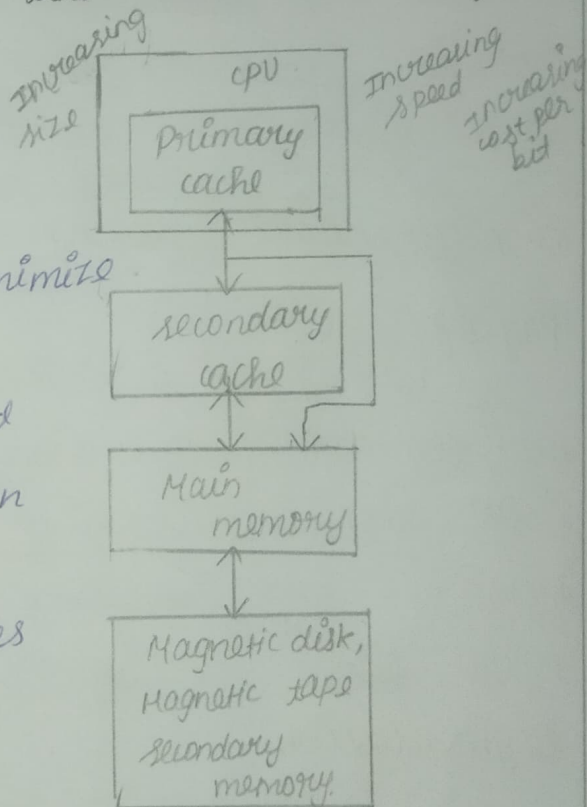 Increasing
size
CPU
Primary
cache
Increasing
speed
Increasing
cost per
bit
nimize
secondary
cache
Main
memory
Magnetic disk,
Magnetic tape
secondary
memory.